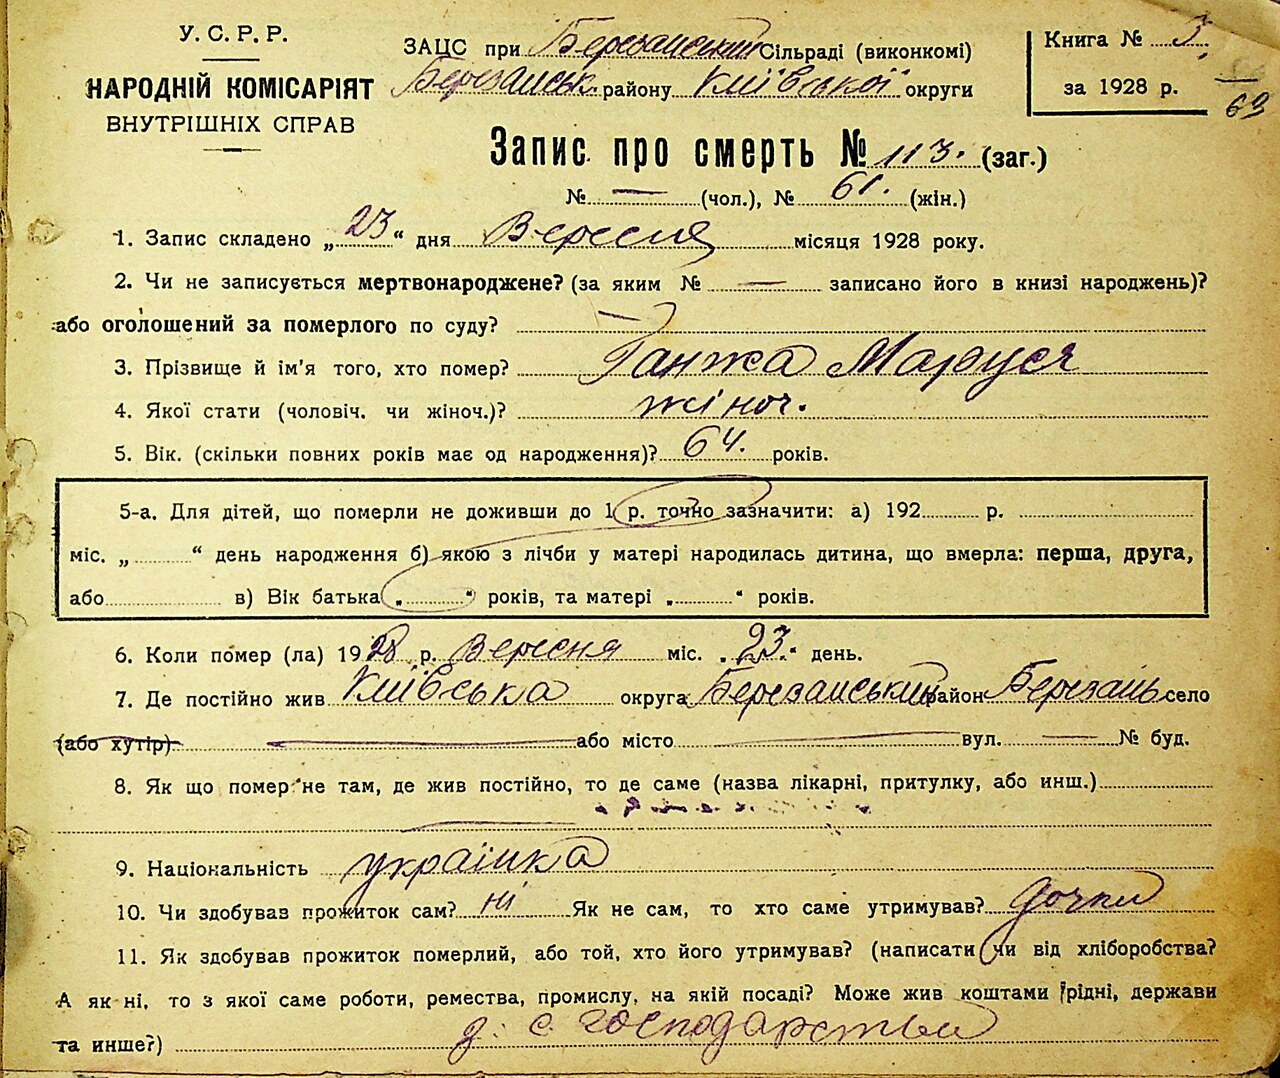 У. С. Р. Р.
НАРОДНІЙ КОМІСАРІЯТ
ВНУТРІШНІХ СПРАВ
ЗАЦС при Березанський Сільраді (виконкомі)
Березанськ. району Київської округи
Книга № 3.
за 1928 р.
69
Запис про смерть № 113. (заг.)
№ — (чол.), № 61. (жін.)
1. Запис складено „23“ дня Вересня місяця 1928 року.
2. Чи не записується мертвонароджене? (за яким № — записано його в книзі народжень)?
або оголошений за померлого по суду? —
3. Прізвище й ім'я того, хто помер? Ганжа Маруся
4. Якої стати (чоловіч. чи жіноч.)? жіноч.
5. Вік. (скільки повних років має од народження)? 64. років.
5-а. Для дітей, що померли не доживши до 1 р. точно зазначити: а) 192 р.
міс. „ “ день народження б) якою з лічби у матері народилась дитина, що вмерла: перша, друга,
або в) Вік батька „ “ років, та матері „ “ років.
6. Коли помер (ла) 1928 р. Вересня міс. „23.“ день.
7. Де постійно жив Київська округа Березанський район Березань село
(або хутір) — або місто — вул. — № буд.
8. Як що помер не там, де жив постійно, то де саме (назва лікарні, притулку, або инш.)
—
9. Національність українка
10. Чи здобував прожиток сам? ні Як не сам, то хто саме утримував? дочки
11. Як здобував прожиток померлий, або той, хто його утримував? (написати чи від хліборобства?
А як ні, то з якої саме роботи, ремества, промислу, на якій посаді? Може жив коштами рідні, держави
та инше?) з. с. господарства